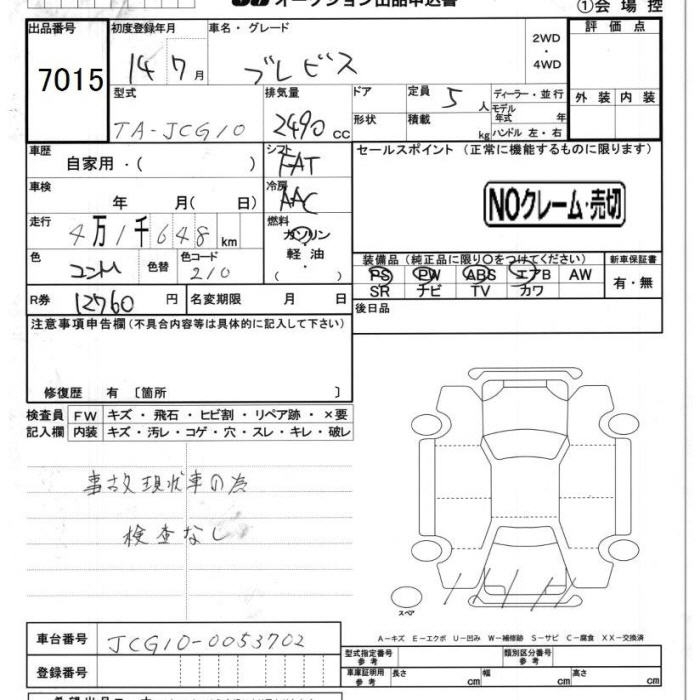 オークション出品申込書
①会場控
出品番号 初度登録年月 車名・グレード 評価点
7015 14 7月 ブレビス 2WD・4WD
外装 内装
型式 排気量 ドア 定員 5人 ディーラー・並行
TA-JCG10 2490cc 形状 積載 kg モデル年式 年 ハンドル 左・右
車歴 自家用・( ) シフト FAT セールスポイント (正常に機能するものに限ります)
車検 年 月( 日) 冷房 AAC
NOクレーム・売切
走行 4万1千648km 燃料 ガソリン 軽油・( )
色 色替 色コード 210
装備品(純正品に限り○をつけてください) 新車保証書
PS PW ABS エアB AW 有・無
SR ナビ TV カワ
R券 12760円 名変期限 月 日 後日品
注意事項申告欄(不具合内容等は具体的に記入して下さい)
修復歴 有 〔箇所 〕
検査員 FW キズ・飛石・ヒビ割・リペア跡・×要
記入欄 内装 キズ・汚レ・コゲ・穴・スレ・キレ・破レ
事故現状車の為
検査なし
スペア
A-キズ E-エクボ U-凹み W-補修跡 S-サビ C-腐食 XX-交換済
車台番号 JCG10-0053702
型式指定番号 参考 類別区分番号 参考
登録番号 車庫証明用 参考 長さ cm 幅 cm 高さ cm